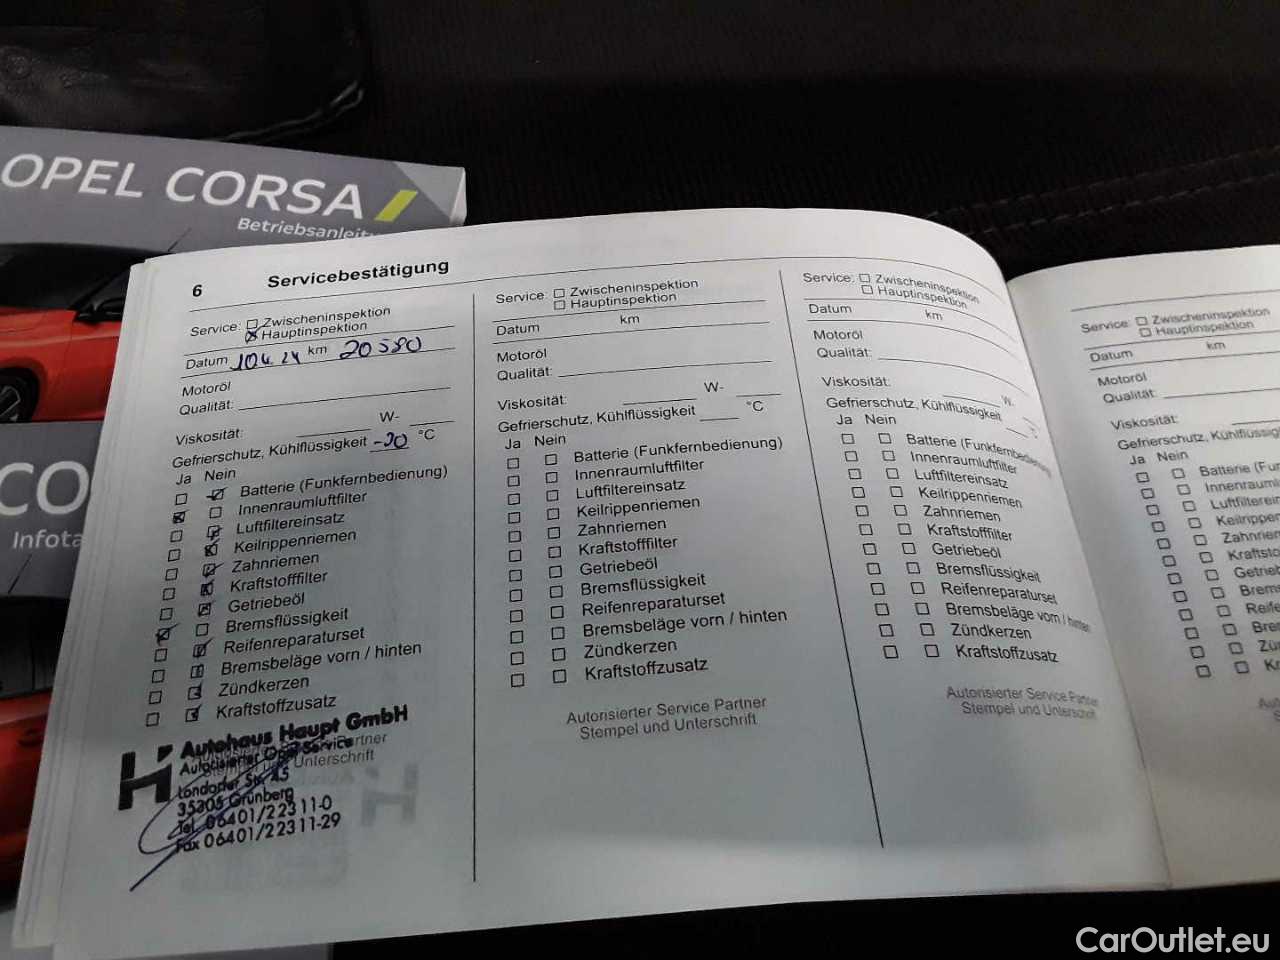 OPEL CORSA
Betriebsanleitu
CO
Infota
6 Servicebestätigung
Service: Zwischeninspektion
Hauptinspektion
Datum 10.4.24 km 20580
Motoröl
Qualität:
Viskosität: W-
Gefrierschutz, Kühlflüssigkeit -30 °C
Ja Nein
Batterie (Funkfernbedienung)
Innenraumluftfilter
Luftfiltereinsatz
Keilrippenriemen
Zahnriemen
Kraftstofffilter
Getriebeöl
Bremsflüssigkeit
Reifenreparaturset
Bremsbeläge vorn / hinten
Zündkerzen
Kraftstoffzusatz
Autorisierter Service Partner
Stempel und Unterschrift
Autohaus Haupt GmbH
Autorisierter Opel Service
Londorfer Str. 45
35305 Grünberg
Tel. 06401/22311-0
Fax 06401/22311-29
Service: Zwischeninspektion
Hauptinspektion
Datum km
Motoröl
Qualität:
Viskosität: W-
Gefrierschutz, Kühlflüssigkeit °C
Ja Nein
Batterie (Funkfernbedienung)
Innenraumluftfilter
Luftfiltereinsatz
Keilrippenriemen
Zahnriemen
Kraftstofffilter
Getriebeöl
Bremsflüssigkeit
Reifenreparaturset
Bremsbeläge vorn / hinten
Zündkerzen
Kraftstoffzusatz
Autorisierter Service Partner
Stempel und Unterschrift
Service: Zwischeninspektion
Hauptinspektion
Datum km
Motoröl
Qualität:
Viskosität: W-
Gefrierschutz, Kühlflüssigkeit °C
Ja Nein
Batterie (Funkfernbedienung)
Innenraumluftfilter
Luftfiltereinsatz
Keilrippenriemen
Zahnriemen
Kraftstofffilter
Getriebeöl
Bremsflüssigkeit
Reifenreparaturset
Bremsbeläge vorn / hinten
Zündkerzen
Kraftstoffzusatz
Autorisierter Service Partner
Stempel und Unterschrift
Service: Zwischeninspektion
Hauptinspektion
Datum km
Motoröl
Qualität:
Viskosität:
Gefrierschutz, Kühlflüssig
Ja Nein
Batterie (Fu
Innenraumlu
Luftfilterein
Keilrippenr
Zahnriem
Kraftsto
Getrieb
Brems
Reife
Bre
Zü
K
CarOutlet.eu